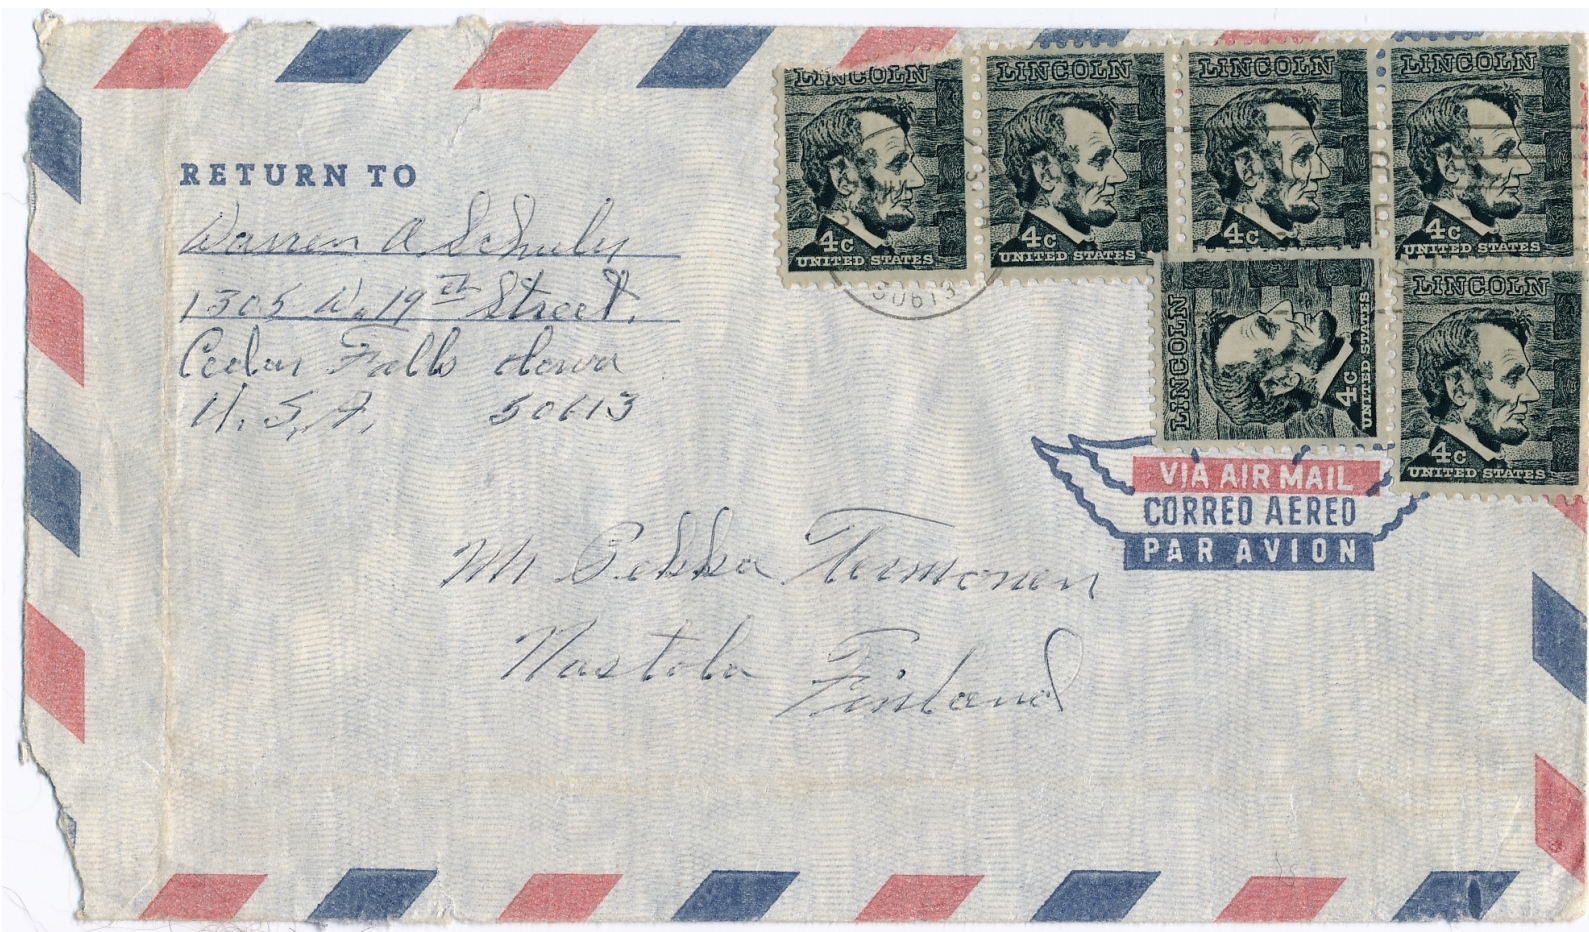 RETURN TO
Warren A Schuler
1305 W. 19th Street.
Cedar Falls Iowa
U.S.A. 50613
LINCOLN
4c
UNITED STATES
LINCOLN
4c
UNITED STATES
LINCOLN
4c
UNITED STATES
LINCOLN
4c
UNITED STATES
LINCOLN
4c
UNITED STATES
LINCOLN
4c
UNITED STATES
50613
VIA AIR MAIL
CORREO AEREO
PAR AVION
Mr Pekka
Nastola
Finland